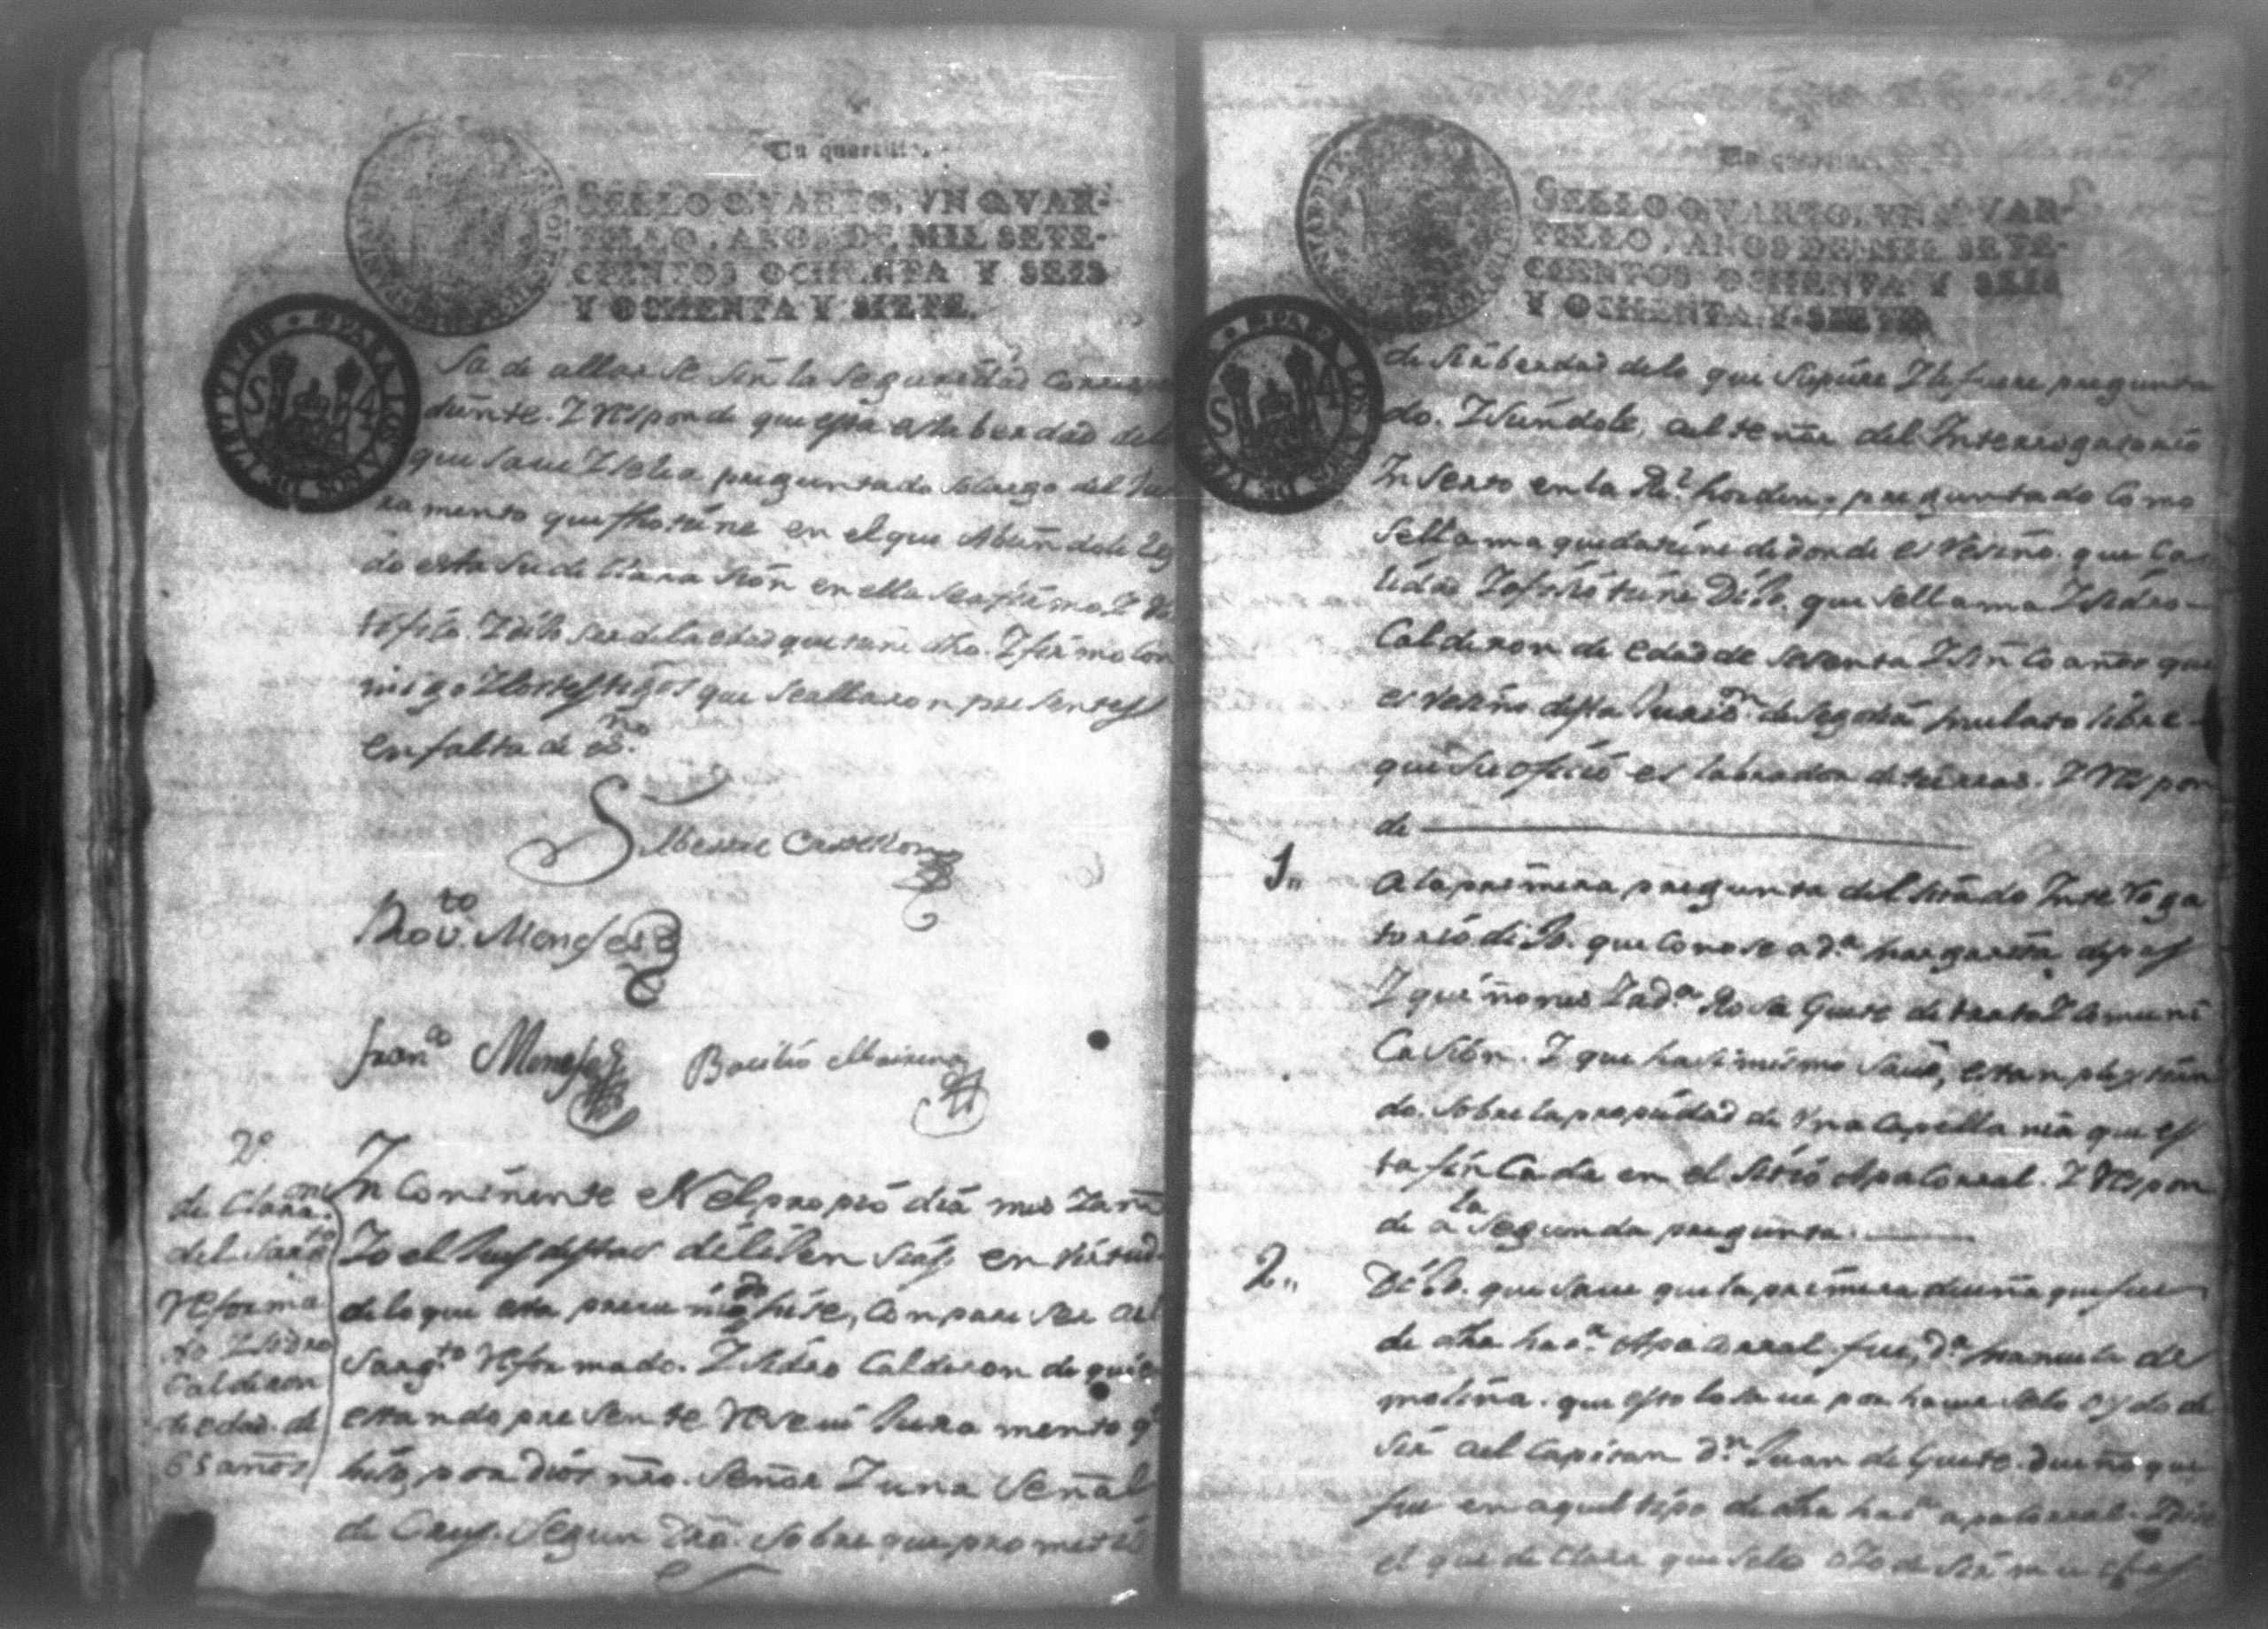 Un quartillo.
SELLO QVARTO, VN QVAR-
TILLO, AÑOS DE MIL SETE-
CIENTOS OCHENTA Y SEIS
Y OCHENTA Y SIETE.
PARA LOS AÑOS DE
S 4
sa de allarse sin la seguredad
diente. Y responde que esta es la berdad delo
que saue Y sele a preguntado so cargo del Ju
ramento que fho tiene en el que
do esta su declarasion en ella se afirmo Y Ra
tifico. Y dijo ser de la edad que tiene dha. Y firmo con
migo Y los testigos que se allaron presentes
en falta de es.no
Silbestre Castellon
Franco Meneses Bacilio Mairena
2º
de Clara.on
del Sarto
Reforma
do Ysidro
Calderon
de edad de
65 años
Yn Continente N el propio dia mes Y añ
Yo el Jues destas dilijensias en birtud
de lo que esta preueni.do hise, Conpareser al
Sargto Reformado. Ysidro Calderon de quie
estando presente Reseui Juramento q.e
hiso por Dios nro. Señor Y una Señal
de Crus. Segun dro. sobre que prometio
67
Un quartillo
SELLO QVARTO, VN QVAR-
TILLO, AÑOS DE MIL SETE-
CIENTOS OCHENTA Y SEIS
Y OCHENTA Y SIETE
PARA LOS AÑOS DE
S 4
desir berdad delo que supiere Y le fuere pregunta
do. Y siendole, al tenor del Interrogatorio
Inserto en la Rl. horden, preguntado Como
se llama que da tiene de donde es vesino que Ca
lidad Y ofisio tiene Dijo. que se llama Ysidro
Calderon de edad de sesenta Y sinco años que
es vesino desta Juris.on de Segovia mulato libre
que su ofisio es labrador de tierras. Y Respon
de
1,, A la primera pregunta del sitado Interroga
torio dijo. que Conose a d.a Margarita
Y a d.a Rosa Guete de trato Y Comuni
Casion. Y que hasimismo saue, estan pleytian
do sobre la propiedad de vna Capellania que es
ta fincada en el sitio Apacorral. Y Respon
de a la segunda pregunta.
2,, Dijo. que saue que la primera dueña que fue
de dha has.a Apacorral fue, d.a Manuela de
molina. que esto lo saue por hauerselo oydo de
sir al Capitan d.n Juan de Guete dueño que
fue en aquel tipo de dha has.a apacorral. Y dise
el que declara que selo oyo desir